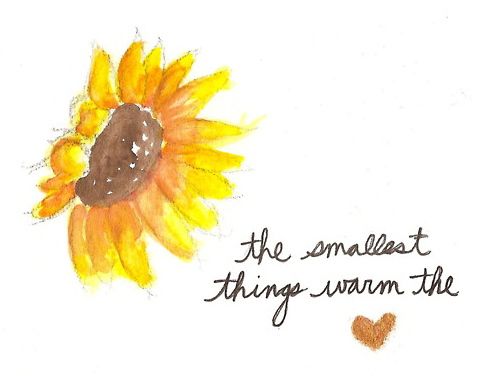 the smallest
things warm the